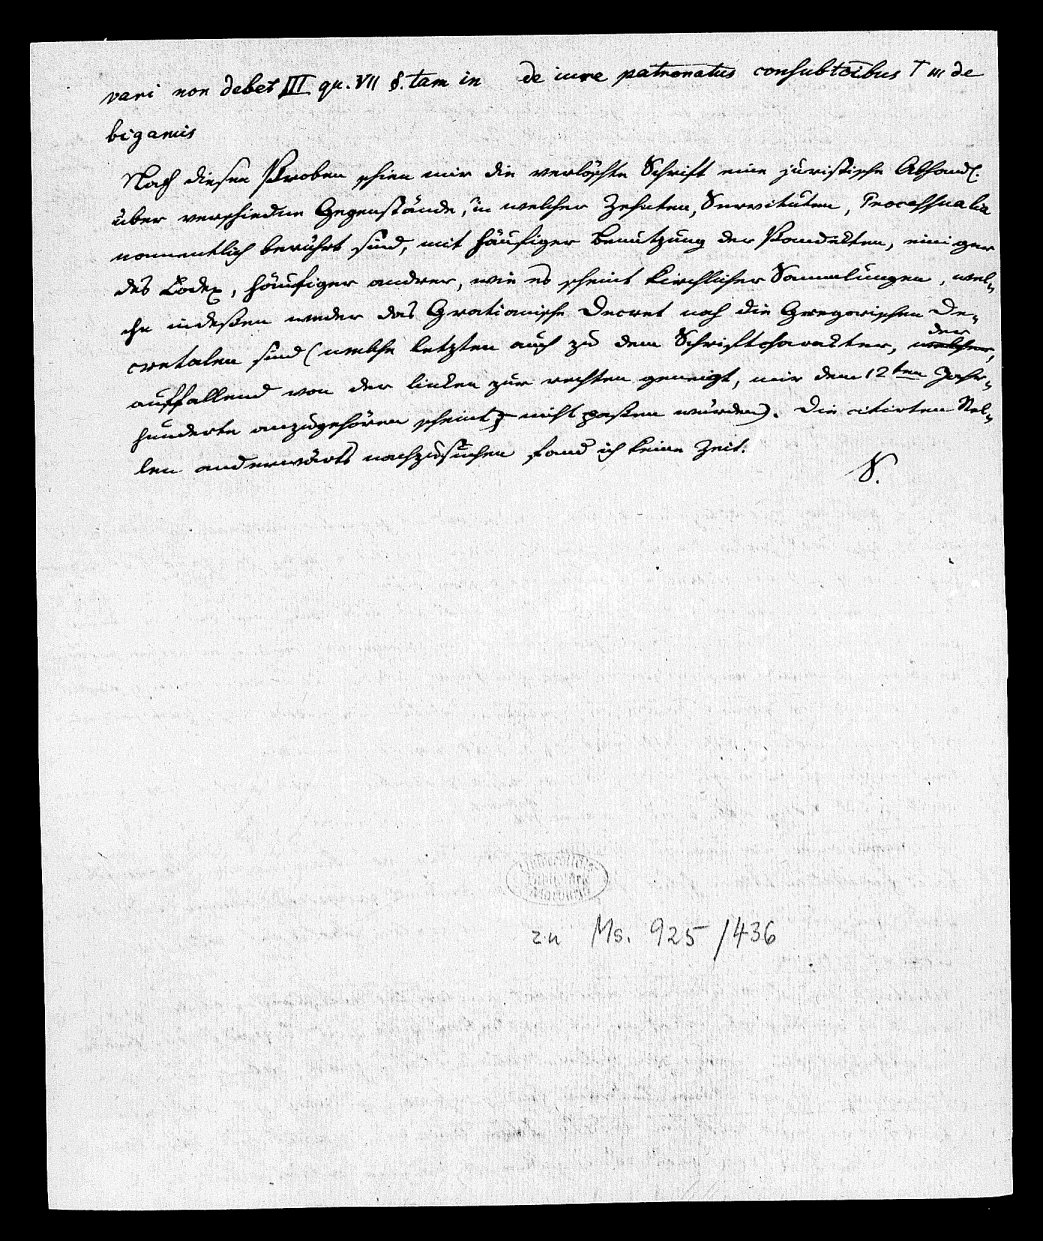 vari non debet III qu. VII §. tam in de iure patronatus consubtoibus T III de
bigamis
Nach diesen Proben schien mir die verlöschte Schrift eine juristische Abhandl.
über verschiedne Gegenstände, in welcher Zehnten, Servituten, Processualia
namentlich berührt sind, mit häufiger Benutzung der Pandekten, einiger
des Codex, häufiger andrer, wie es scheint kirchlicher Sammlungen, wel-
che indeßen weder das Gratianische Decret noch die Gregorischen De-
cretalen sind (welche letzten auch zu dem Schriftcharakter, welcher, der
auffallend von der linken zur rechten geneigt, mir dem 12ten Jahr-
hunderte anzugehören scheint, nicht paßen würden). Die citirten Stel-
len anderwärts nachzusuchen fand ich keine Zeit.
S.
zu Ms. 925/436